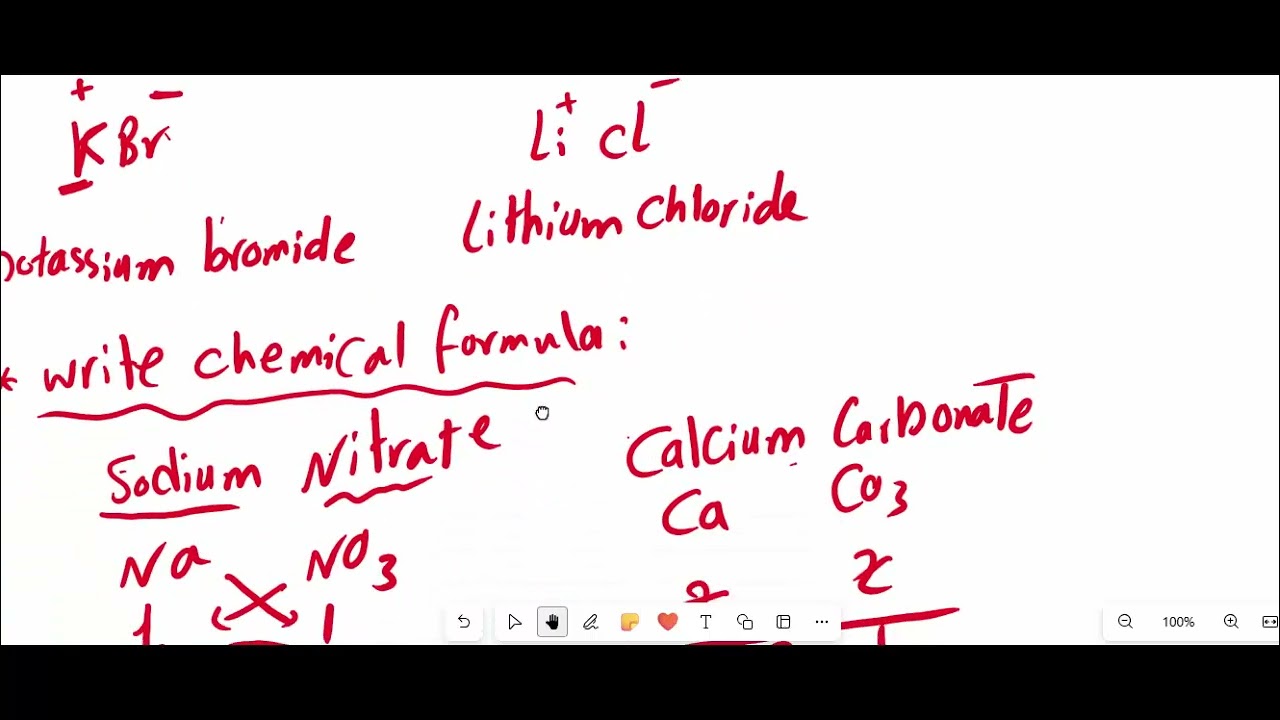 + −
KBr
Li+ Cl−
potassium bromide
Lithium chloride
* write chemical formula:
Sodium Nitrate
Calcium Carbonate
Na NO3
Ca CO3
1 1
2 2
1
T
100%